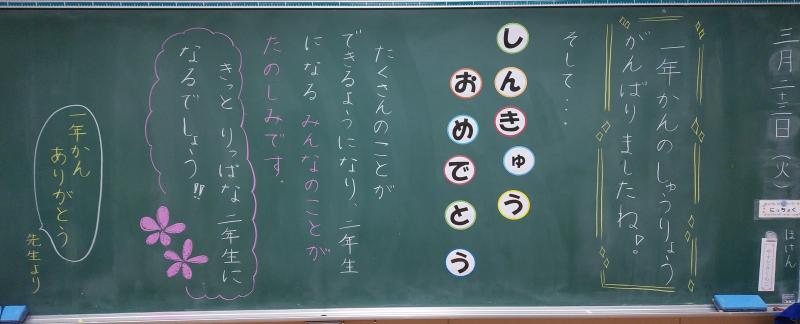 三月二十三日（火）
にっちょく
ほけん
一年かんのしゅうりょう
がんばりましたね!
そして・・・
しんきゅう
おめでとう
たくさんのことが
できるようになり、二年生
になる みんなのことが
たのしみです。
きっと りっぱな 二年生に
なるでしょう!!
一年かん
ありがとう
先生より